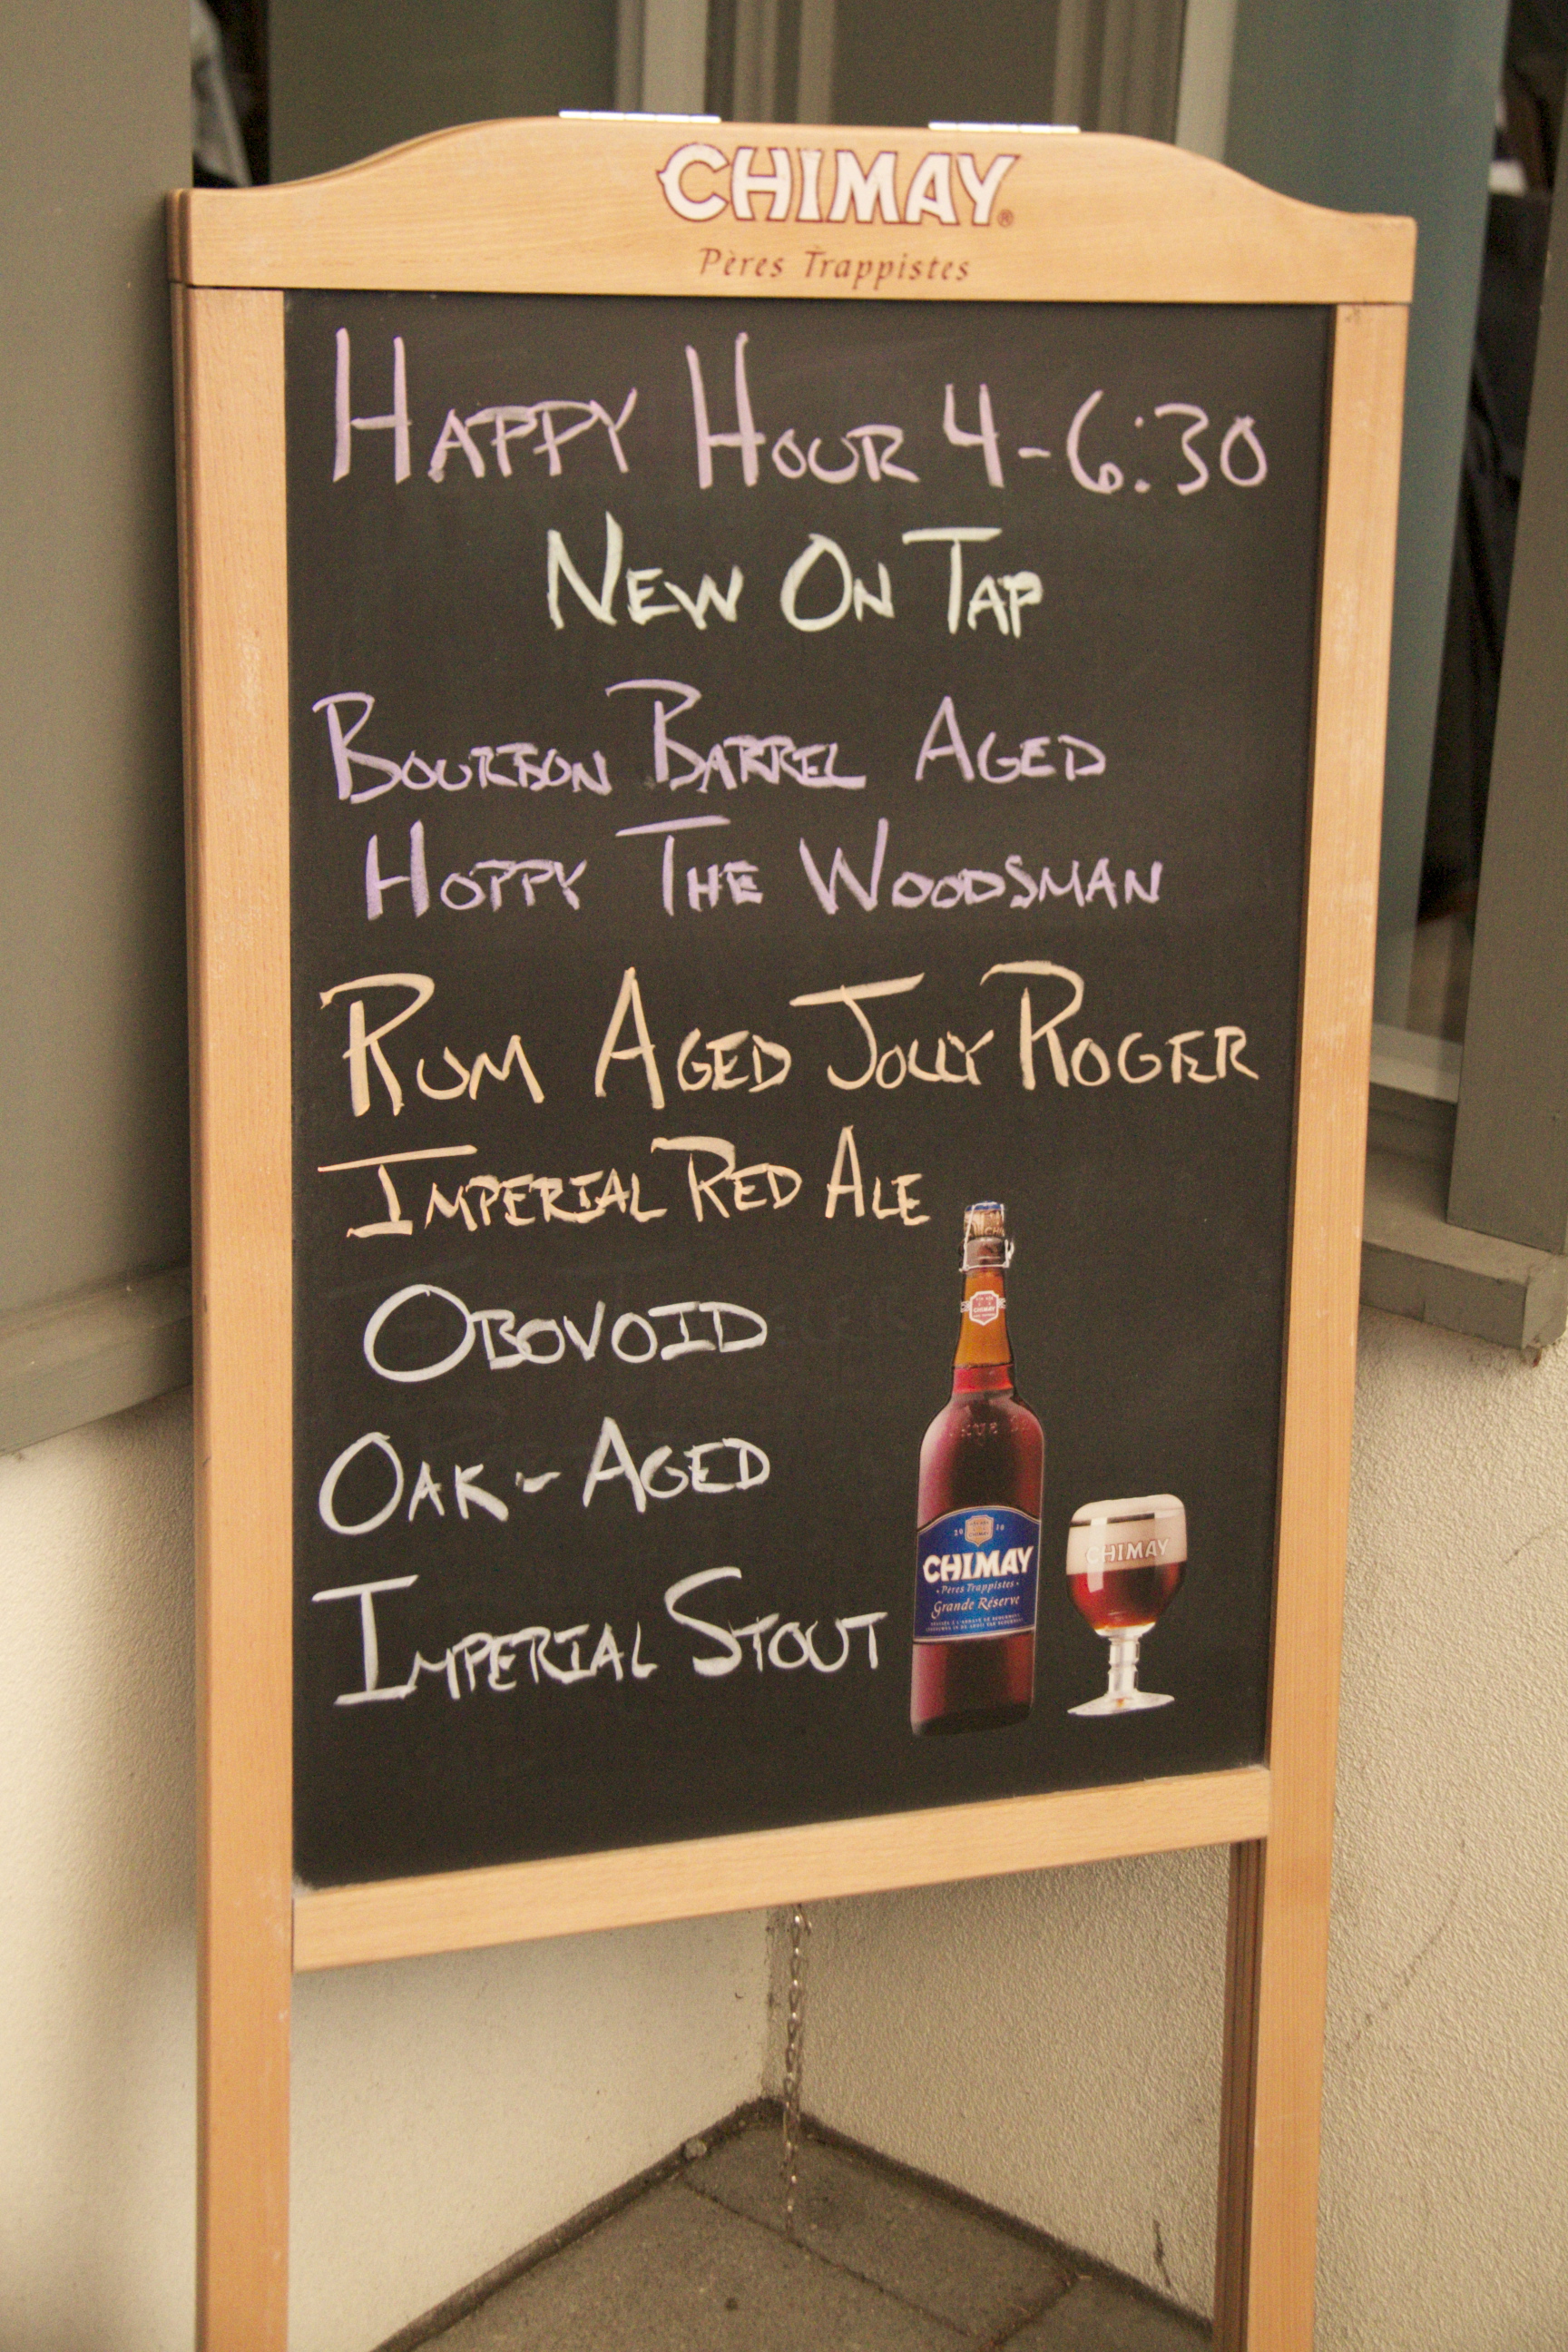 CHIMAY®
Pères Trappistes
HAPPY HOUR 4-6:30
NEW ON TAP
BOURBON BARREL AGED
HOPPY THE WOODSMAN
RUM AGED JOLLY ROGER
IMPERIAL RED ALE
OBOVOID
OAK-AGED
IMPERIAL STOUT
CHIMAY
CHIMAY
Pères Trappistes
Grande Réserve
CHIMAY